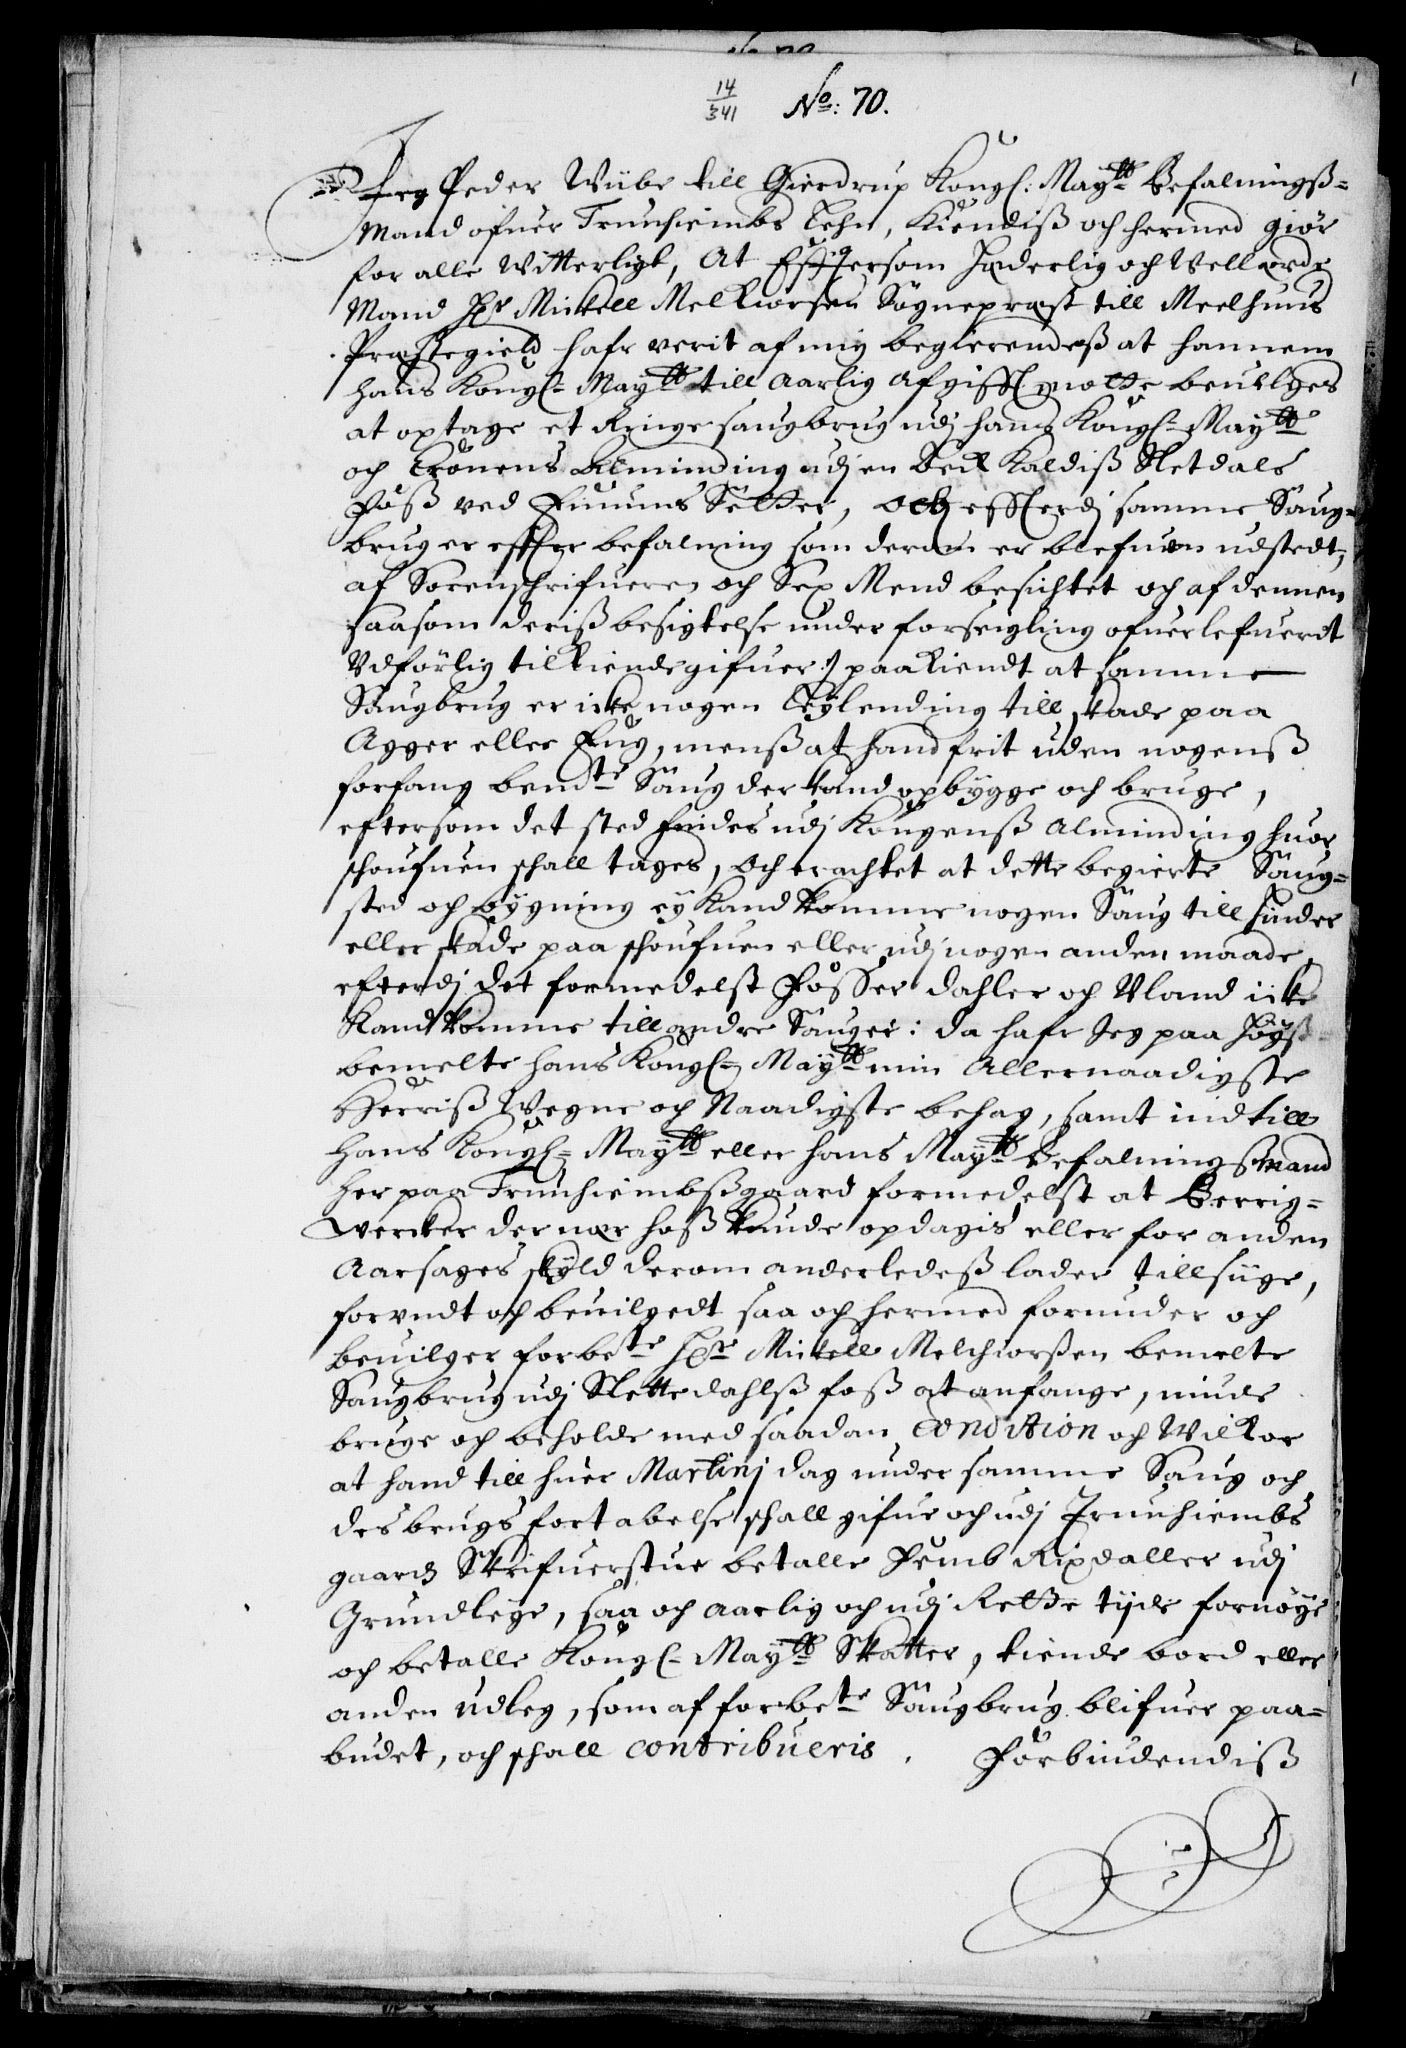 1
14/341 No: 70.
Jeg Peder Wiibe till Gierdrup Kongl: Maytts Befalningsß=
Mand ofuer Trunhiembs Lehn, Kiendiß och hermed giör
for alle Witterligt, At Efftersom Hæderlig och Vellærde
Mand Hr Mickell Melkiorsen Sognepræst till Meelhuus
Præstegield hafr verit af mig begierendeß at hannem
hans Kongl= Maytts till Aarlig Afgifft motte beuilges
at optage et Ringe saugbrug udj hans Kongl= Maytts
och Cronens Alminding udj en Beck Kaldiß Sletdals
Foß ved Enuums Setter, och effterdj samme Saug=
brug er effter befalning som derom er blefuen udstedt,
af Sorenschrifueren och Sex Mend besichtet och af dennem
saasom deriß besigtelse under forseigling ofuerlefuerit
Vdförlig tilkiende gifuer) paakiendt at samme
Saugbrug er icke nogen Leylending till skade paa
Agger eller Eng, menß at hand frit uden nogenß
forfang bemte Saug der kand opbygge och bruge,
eftersom det sted findes udj Kongenß Alminding huor
schoufuen schall tages, Och erachtet at dette begierte Saug=
sted och bygning ey Kand komme nogen Saug till hinder
eller skade paa schoufuen eller udj nogen anden maade,
efterdj det formedelst Foßer dahler och Vland icke
Kand komme till andre Sauger: da hafr Jeg paa höyst=
bemelte hans Kongl= Maytts min Allernaadigste
Herriß Vegne och Naadigste behag, samt indtill
hans Kongl= Maytt eller hans Maytts Befalningßmand
her paa Trunhiembßgaard formedelst at Berrig=
wercker der nær hoß kunde opdagis eller for anden
Aarsages skyld derom anderledeß lader tillsiige,
forundt och beuilgedt saa och hermed forunder och
beuilger forbete Hr Mickell Melchiorßen bemelte
Saugbrug udj Slettedahlß foß at anfange, niude
bruge och beholde med saadan Condition och Wilkor
at hand till huer Martinj dag under samme Saug och
des brugs fortabelse schall gifue och udj Trunhiembs
gaards Skrifuerstue betalle Femb Rixdaller udj
Grundleye, saa och aarlig och udj Rette tijde fornöye
och betalle Kongl= Maytts Skatter, tiende bord eller
anden udleg, som af forbete Saugbrug blifuer paa=
budet, och schall contribueris. Forbiudendiß